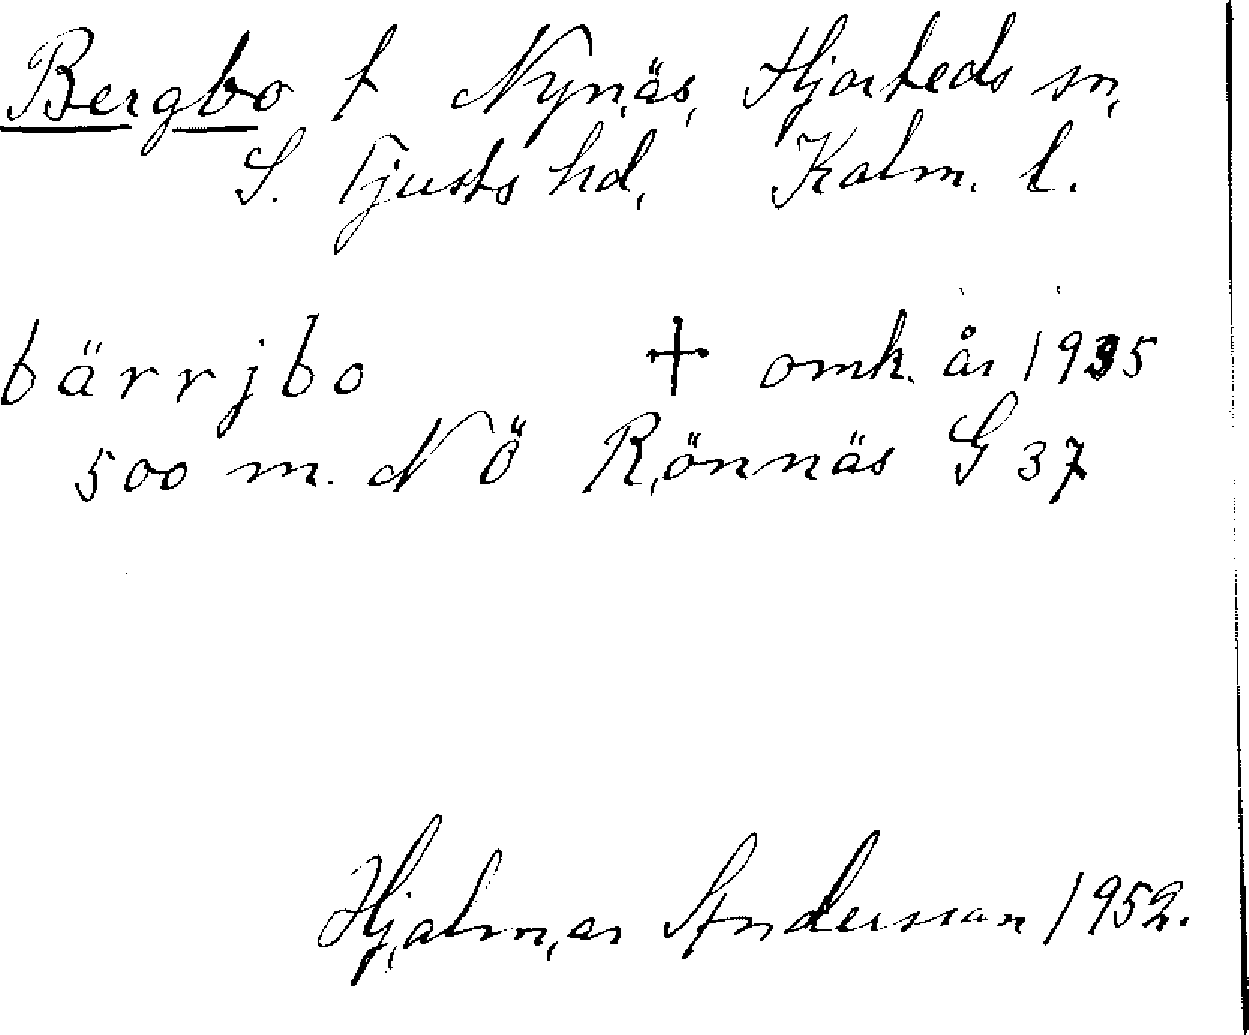 Bergbo t Nynäs, Hjorteds sn,
S. Tjusts hd, Kalm. l.
bärrjbo † omk. år 1935
500 m. NÖ Rönnäs G 37
Hjalmar Andersson 1952.